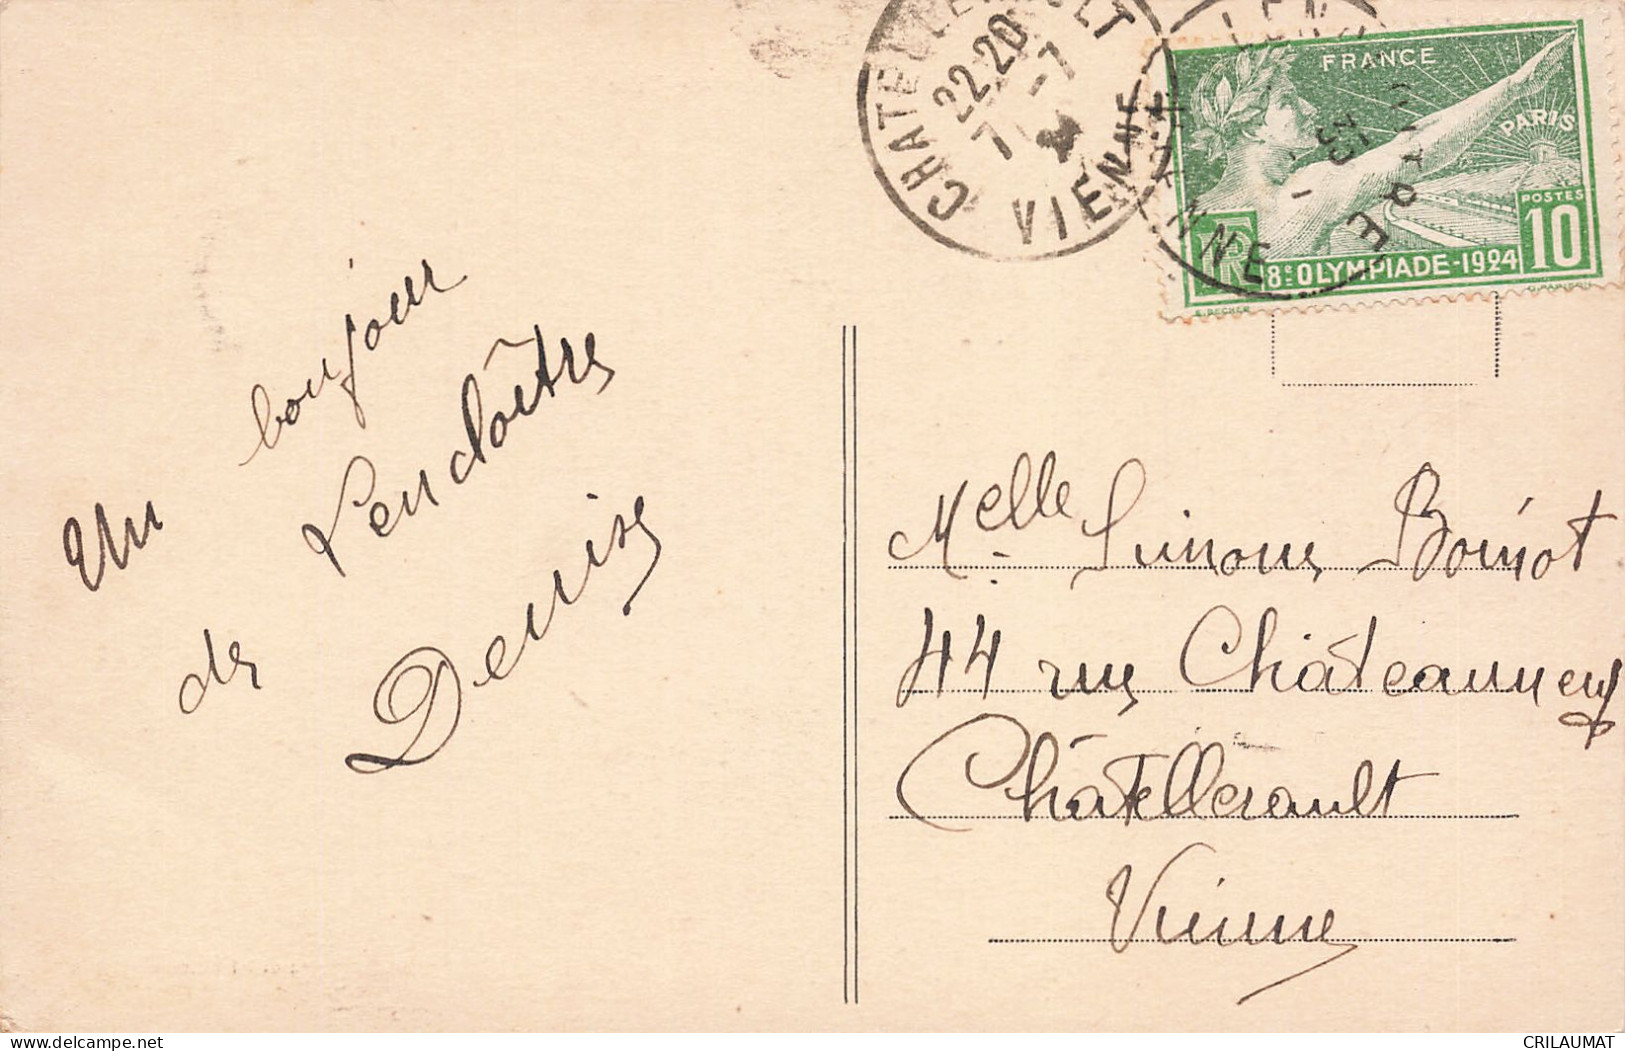 Un bonjour
de Lencloître
Denise
CHATELLERAULT
22·20
7 -7
VIENNE
LENCLOITRE
VIENNE
FRANCE
PARIS
POSTES
10
RF
8e OLYMPIADE-1924
Melle Simone Boinot
44 rue Châteauneuf
Châtellerault
Vienne
delcampe.net
CRILAUMAT